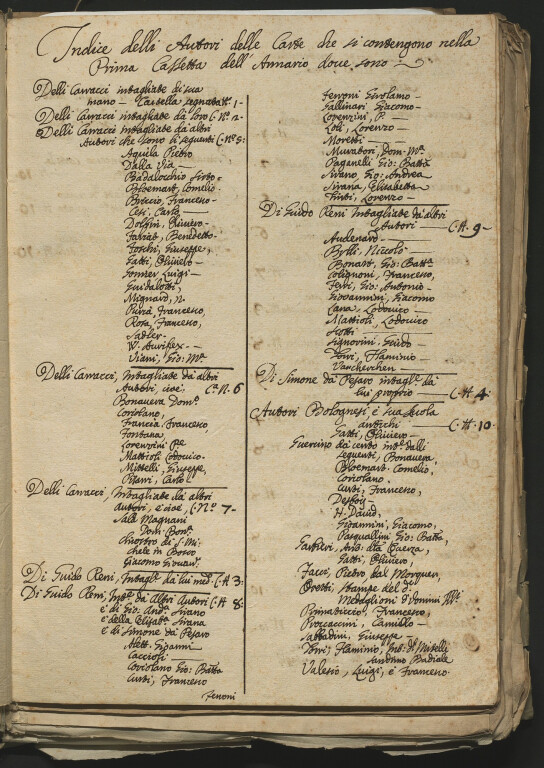 Indice delli Autori delle Carte che si contengono nella
Prima Cassetta dell'Armario doue sono
Delli Carracci intagliate di sua
mano - Cassella segnata N. 1 -
Delli Carracci intagliate da loro C. No 2 -
Delli Carracci intagliate da altri
Autori che sono li seguenti C. No 5:
Aquila Pietro
Dalla Via -
Badalocchio Sisto -
Bloemart, Cornelio -
Briccio, Francesco -
Cesi, Carlo
Dolfin, Oliviero -
Fariat, Benedetto -
Foschi, Giuseppe,
Gatti, Oliviero -
Gomier Luigi -
Guidalotti,
Mignard, N.
Purà Francesco,
Rosa, Francesco,
Sadler -
W. Aurifex -
Viani, Gio: Ma.
Delli Carracci, Intagliate da altri
Autori, cioè C. a N. 6
Bonavera Dom.o
Coriolano,
Francia Francesco
Fontana,
Lorenzini Pe
Mattioli Lodovico
Mitelli, Giuseppe,
Pisarri, Carlo
Delli Carracci, Intagliate da altri
Autori, e cioè C. No 7 -
Sala Magnani
Dom: Bon.
Chiostro di S. Mi:
chele in Bosco
Giacomo Giovan.
Di Guido Reni, Intagl.e da lui med. C. # 3:
Di Guido Reni, Int.e da Altri Autori C. # 8:
e di Gio: And.a Sirano
e della Elisab.a Sirana
e di Simone da Pesaro
Caccioli
Coriolano Gio: Batta
Curti, Francesco
Ferroni
Ferroni Girolamo -
Gallinari Giacomo -
Lorenzini, P. -
Loli, Lorenzo -
Moretti -
Muratori, Dom: Ma.
Paganelli Gio: Batta
Sirano, Gio: Andrea
Sirana, Elisabetta
Tinti, Lorenzo -
Di Guido Reni Intagliate da altri
Autori - C. # 9 -
Audenard -
Bylli, Niccolò -
Bonart, Gio: Batta.
Colignoni, Francesco,
Ferri, Gio: Antonio -
Giovannini, Giacomo
Lana, Lodovico -
Mattioli, Lodovico
Scotti -
Signorini, Guido -
Torri, Flaminio -
Vanscherchen -
Di Simone da Pesaro intagl.e da
lui proprio - C. # 4 -
Autori Bolognesi, e sua scuola
antichi - C. # 10 -
Gatti, Oliviero -
Guercino da Cento int.e dalli
seguenti, Bonavera
Bloemart Cornelio,
Coriolano,
Curti, Francesco,
Desbois -
H. David,
Giovannini, Giacomo,
Pasqualini Gio: Batta,
Gatti, Oliviero,
Facci, Pietro dal
Oretti, Stampe del d.o
Medaglioni d'Uomini Ill.i
Primaticcio, Francesco,
Procaccini, Camillo -
Sabbadini, Giuseppe
Torri, Flaminio, Int. da Mitelli
Sandrino Badiale
Valesio, Luigi, e Francesco.